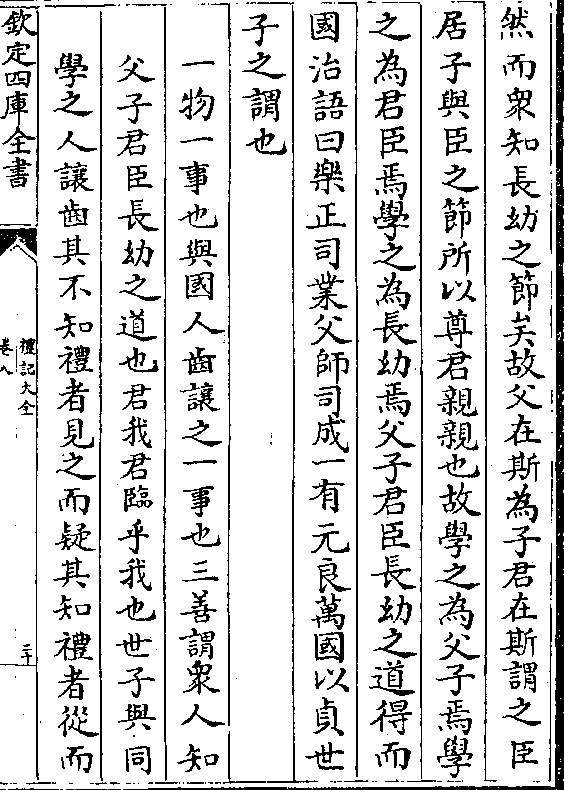 然而衆知長幼之節矣故父在斯為子君在斯謂之臣
居子與臣之節所以尊君親親也故學之為父子焉學
之為君臣焉學之為長幼焉父子君臣長幼之道得而
國治語曰樂正司業父師司成一有元良萬國以貞世
子之謂也
一物一事也與國人齒讓之一事也三善謂衆人知
父子君臣長幼之道也君我君臨乎我也世子與同
學之人讓齒其不知禮者見之而疑其知禮者從而
欽定四庫全書
禮記大全
卷八
二十